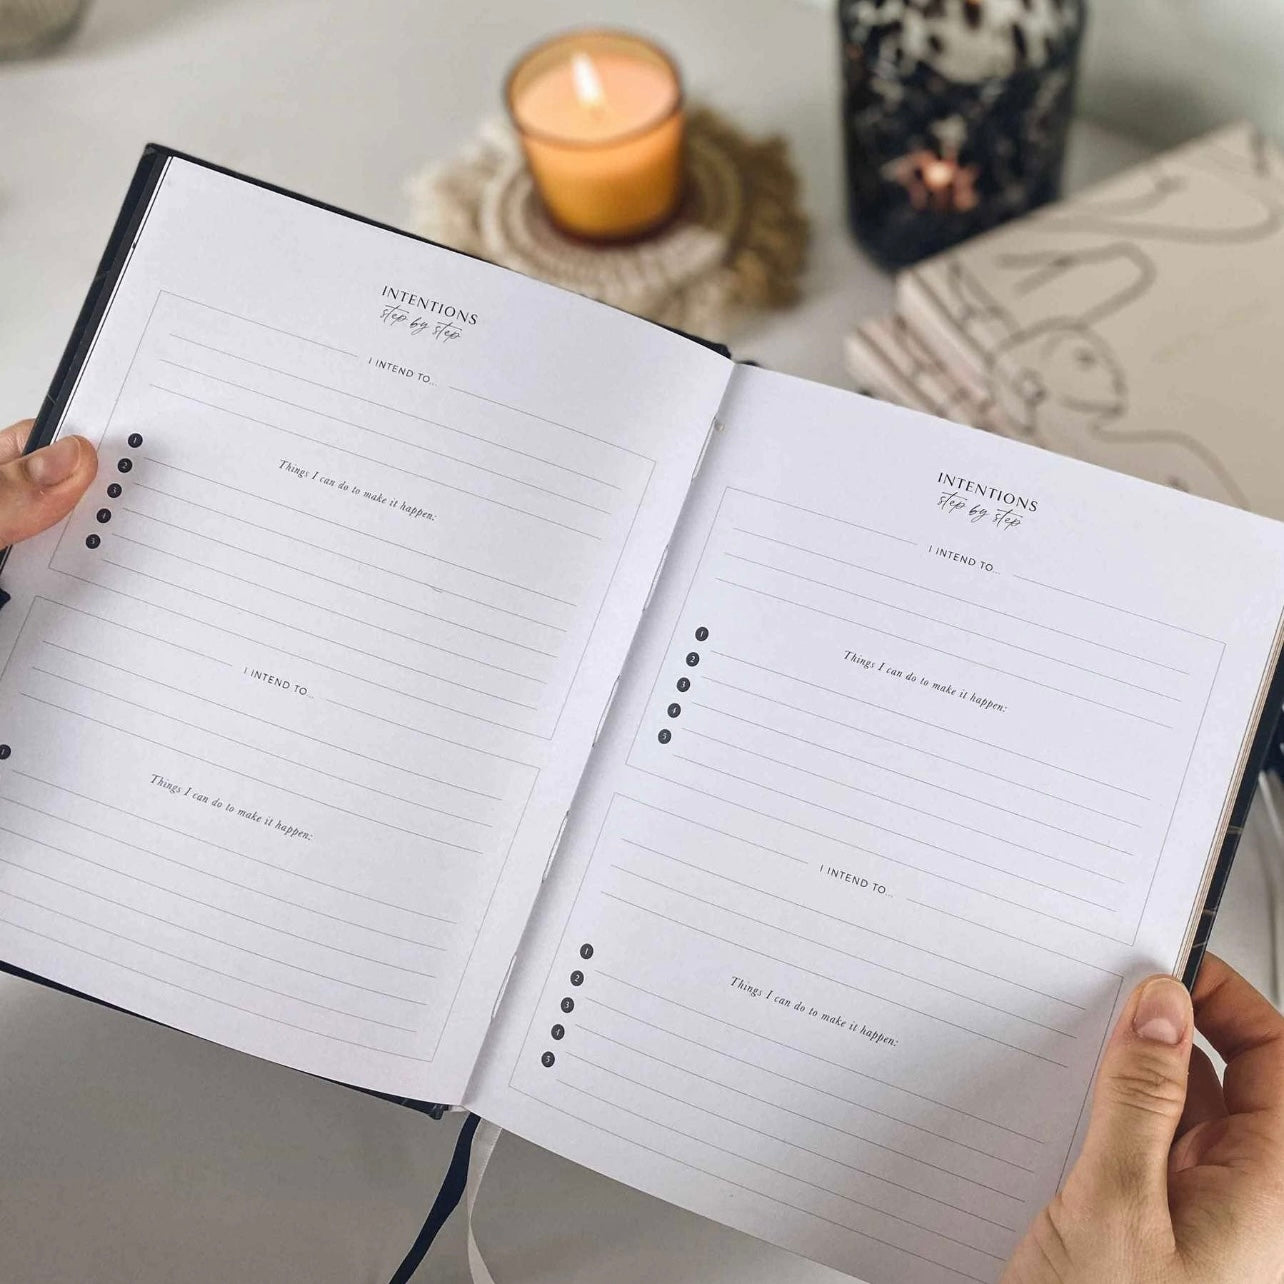 INTENTIONS
step by step
I INTEND TO...
Things I can do to make it happen:
1
2
3
4
5
I INTEND TO...
Things I can do to make it happen:
1
INTENTIONS
step by step
I INTEND TO...
Things I can do to make it happen:
1
2
3
4
5
I INTEND TO...
Things I can do to make it happen:
1
2
3
4
5